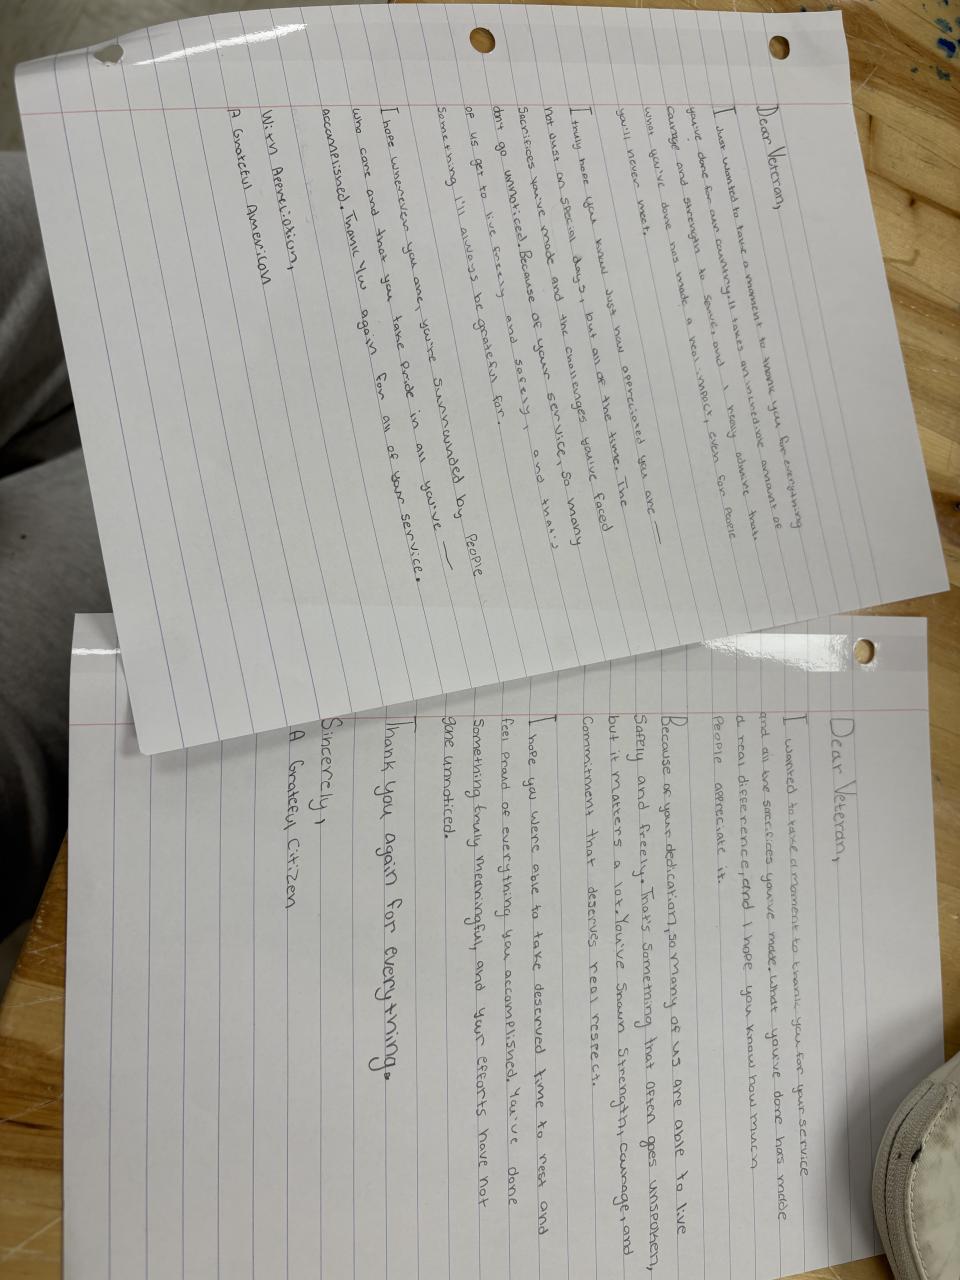 Dear Veteran,
I Just wanted to take a moment to thank you for everything
you've done for our country. It takes an incredible amount of
courage and strength to serve, and I really admire that.
what you've done has made a real impact, even for people
you'll never meet.
I truly hope you know just how appreciated you are —
not Just on special days, but all of the time. The
sacrifices you've made and the challenges you've faced
don't go unnoticed. Because of your service, so many
of us get to live freely and safely, and that's
something I'll always be grateful for.
I hope wherever you are, you're surrounded by People
who care and that you take pride in all you've —
accomplished. Thank You again for all of your service.
With Appreciation,
A Grateful American
Dear Veteran,
I wanted to take a moment to thank you for your service
and all the sacrifices you've made. What you've done has made
a real difference, and I hope you know how much
People appreciate it.
Because of your dedication, so many of us are able to live
Safely and freely. That's something that often goes unspoken,
but it matters a lot. You've shown strength, courage, and
commitment that deserves real respect.
I hope you were able to take deserved time to rest and
feel proud of everything you accomplished. You've done
something truly meaningful, and your efforts have not
gone unnoticed.
Thank you again for everything.
Sincerely,
A Grateful Citizen